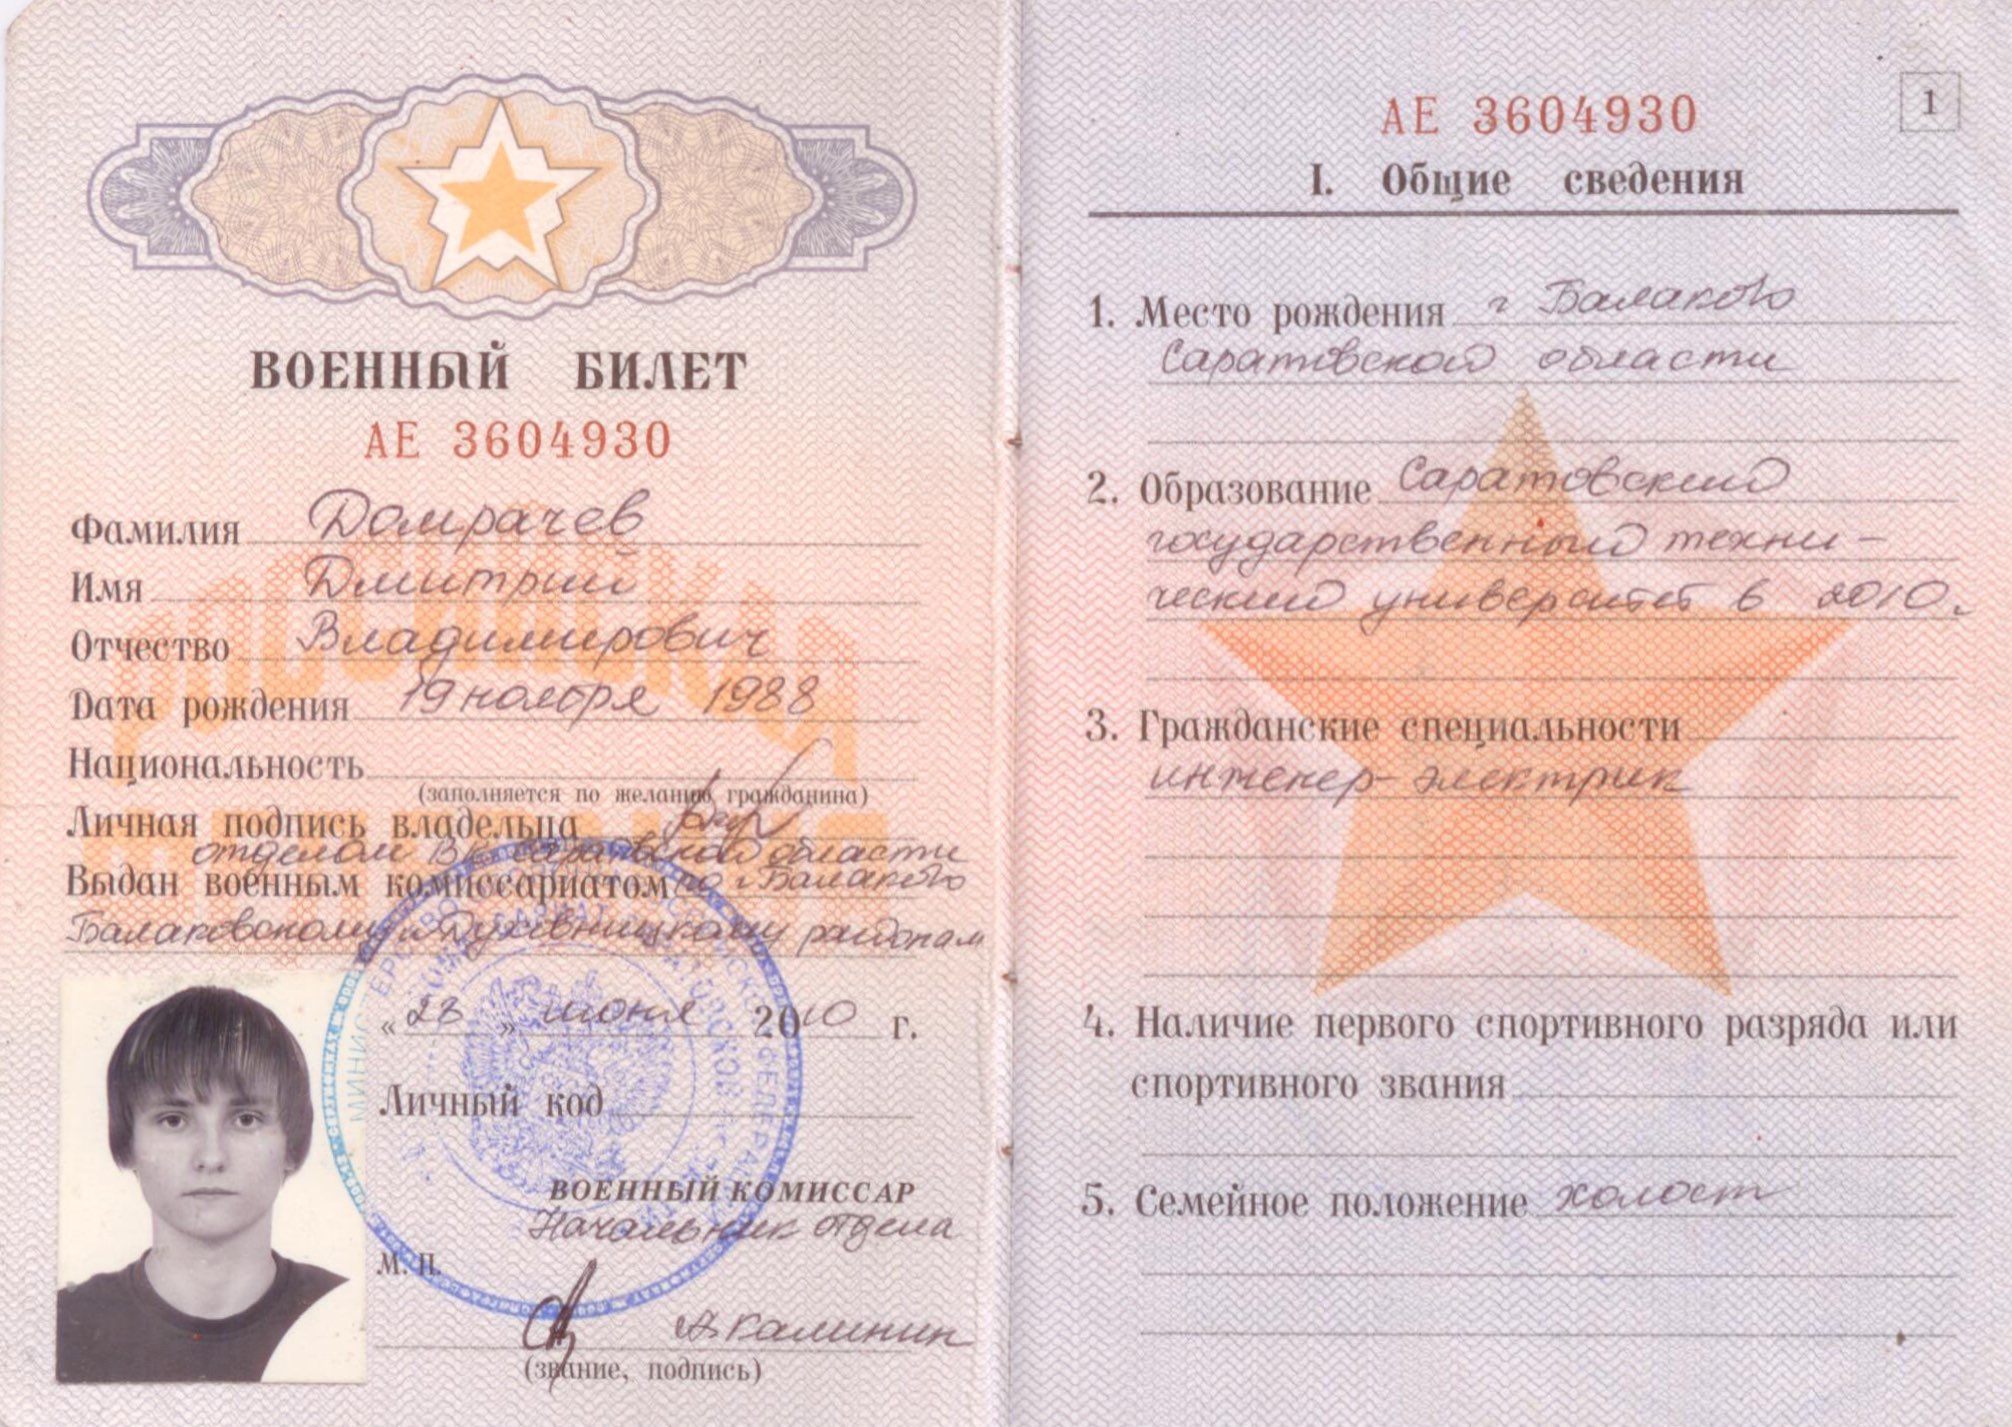 ВОЕННЫЙ БИЛЕТ
АЕ 3604930
Фамилия Домрачев
Имя Дмитрий
Отчество Владимирович
Дата рождения 19 ноября 1988
Национальность
(заполняется по желанию гражданина)
Личная подпись владельца
отделом ВК Саратовской области
Выдан военным комиссариатом по г. Балаково
Балаковскому и Духовницкому районам
«23» июня 2010 г.
Личный код
ВОЕННЫЙ КОМИССАР
Начальник отдела
М. П.
Калинин
(звание, подпись)
1
АЕ 3604930
I. Общие сведения
1. Место рождения г Балаково
Саратовской области
2. Образование Саратовский
государственный техни-
ческий университет в 2010г.
3. Гражданские специальности
инженер-электрик
4. Наличие первого спортивного разряда или
спортивного звания
5. Семейное положение холост